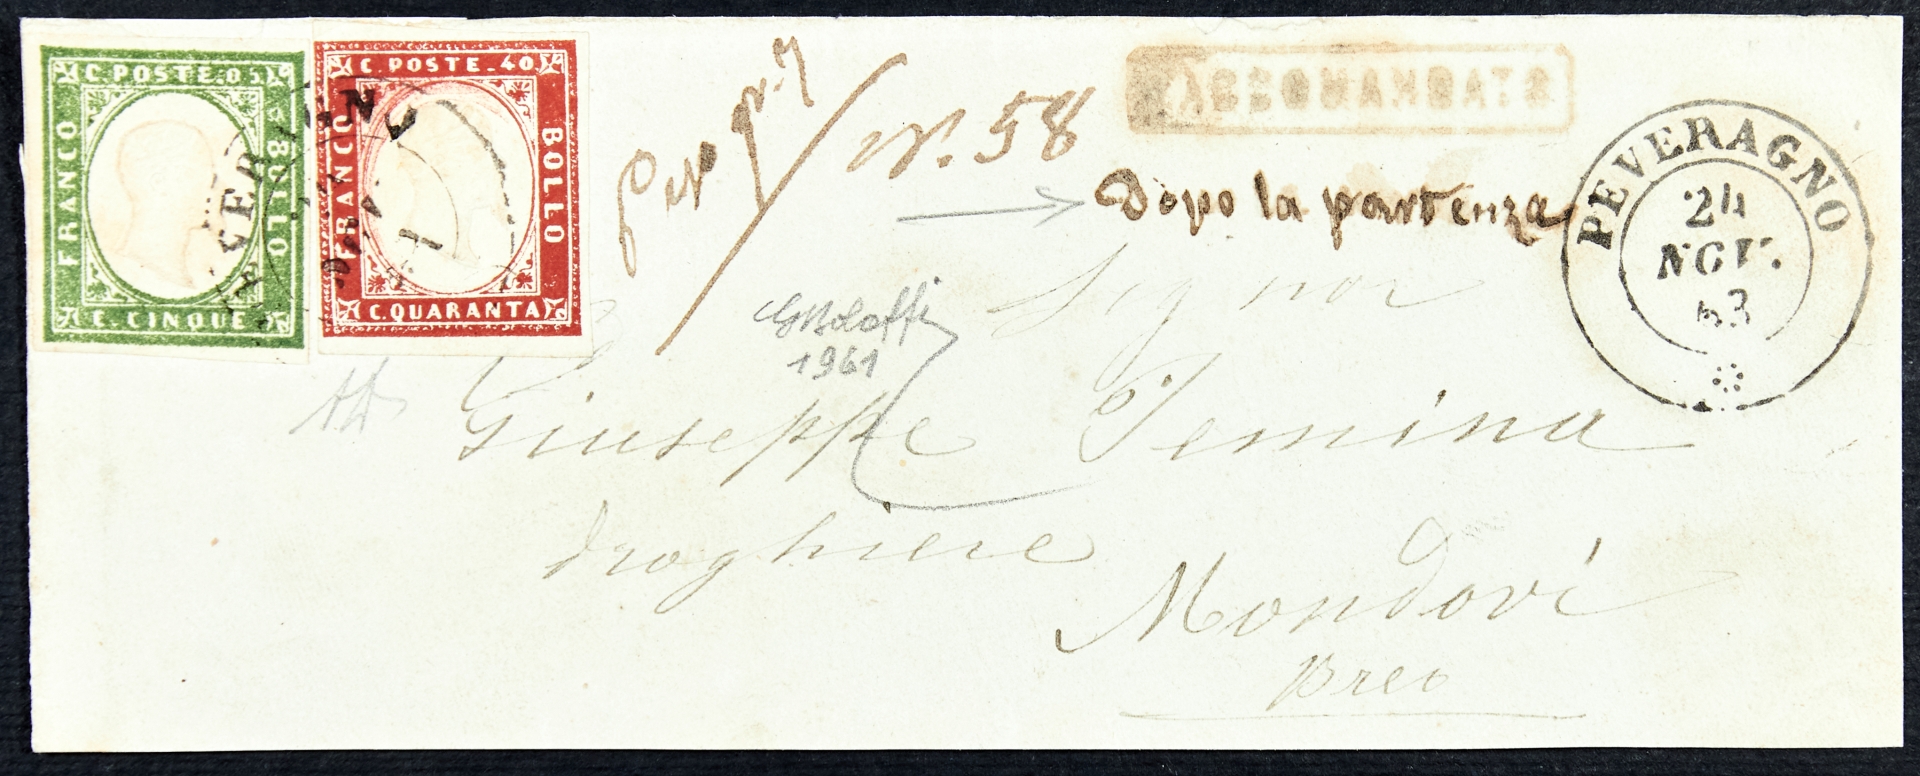 C. POSTE. 05
FRANCO
BOLLO
C. CINQUE
C. POSTE. 40
FRANCO
BOLLO
C. QUARANTA
N. 58
Dopo la partenza
PEVERAGNO
24
NOV.
63
Signor
GBolaffi
1961
Giuseppe Temina
droghiere
Mondovì
Breo